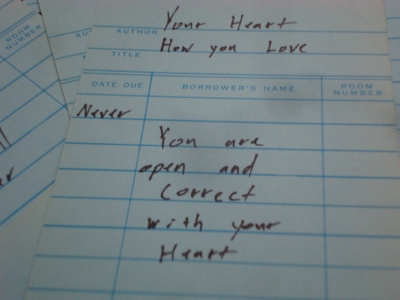 AUTHOR Your Heart
TITLE How you Love
DATE DUE BORROWER'S NAME ROOM NUMBER
Never
You are
open and
correct
with your
Heart
ROOM
NUMBER